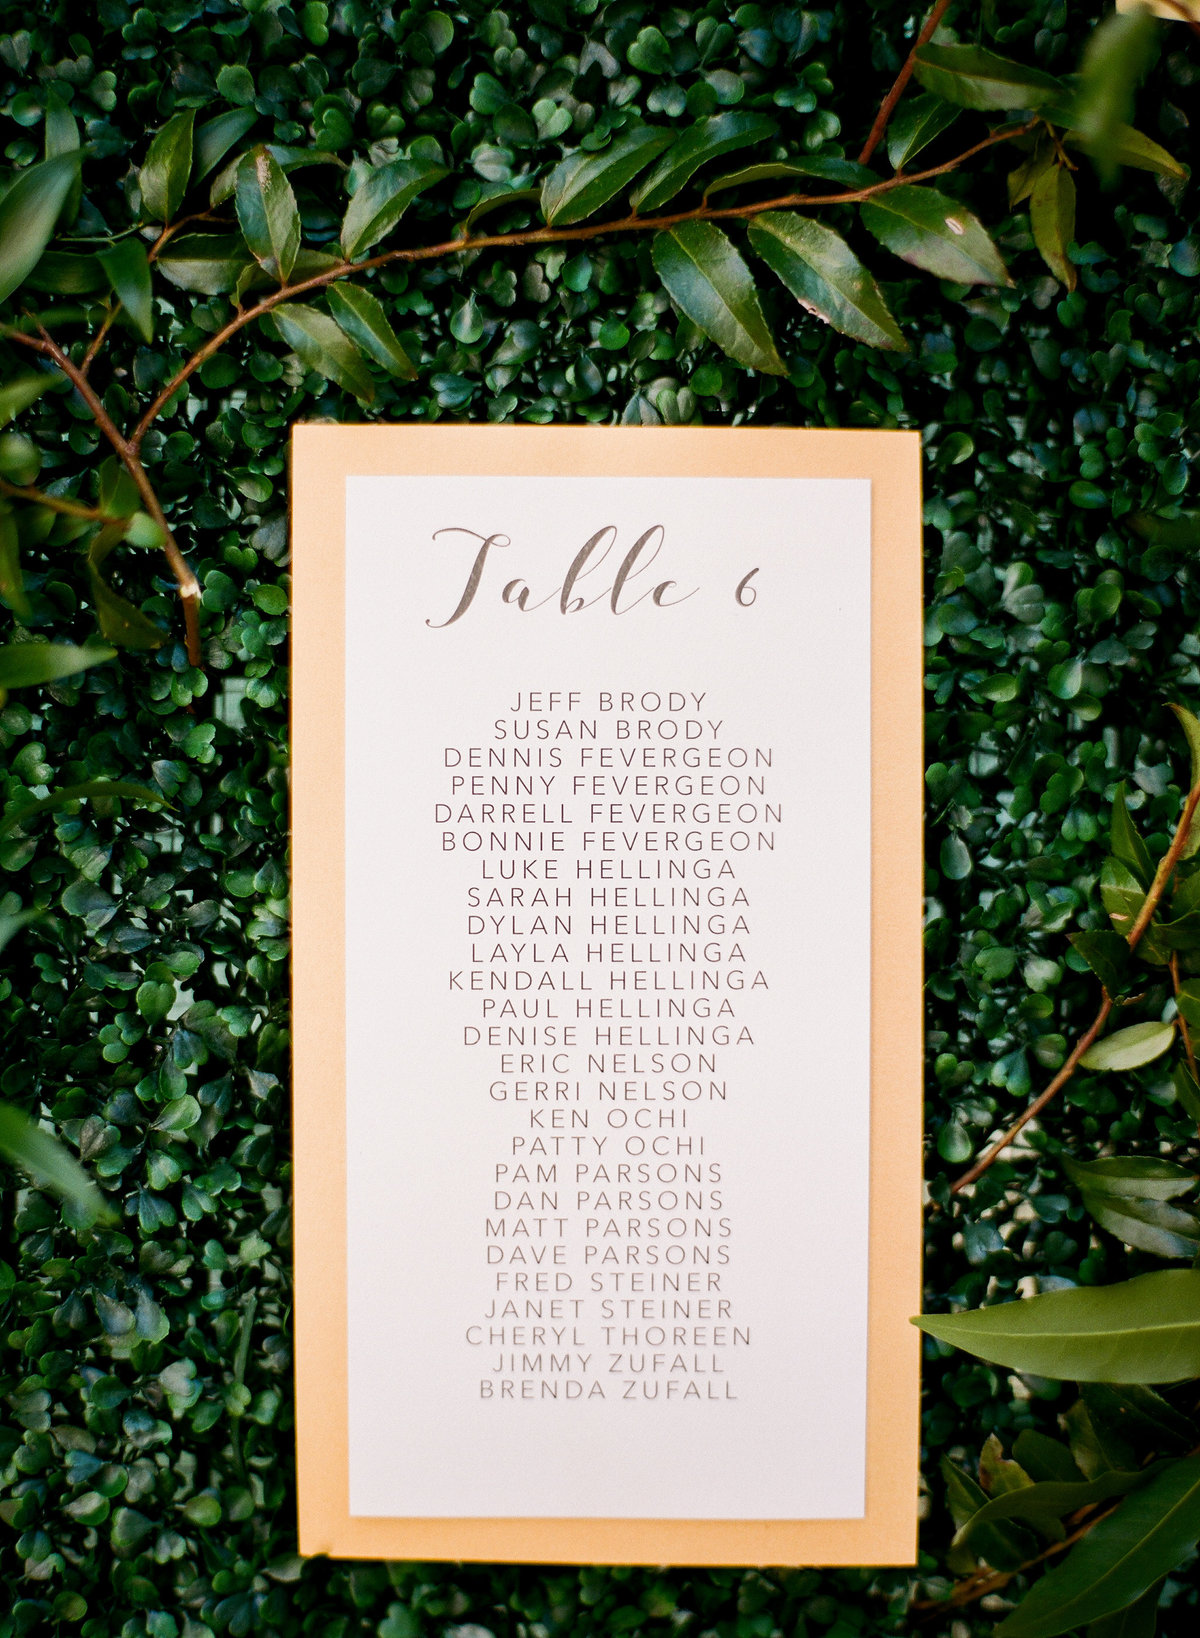 Table 6
JEFF BRODY
SUSAN BRODY
DENNIS FEVERGEON
PENNY FEVERGEON
DARRELL FEVERGEON
BONNIE FEVERGEON
LUKE HELLINGA
SARAH HELLINGA
DYLAN HELLINGA
LAYLA HELLINGA
KENDALL HELLINGA
PAUL HELLINGA
DENISE HELLINGA
ERIC NELSON
GERRI NELSON
KEN OCHI
PATTY OCHI
PAM PARSONS
DAN PARSONS
MATT PARSONS
DAVE PARSONS
FRED STEINER
JANET STEINER
CHERYL THOREEN
JIMMY ZUFALL
BRENDA ZUFALL